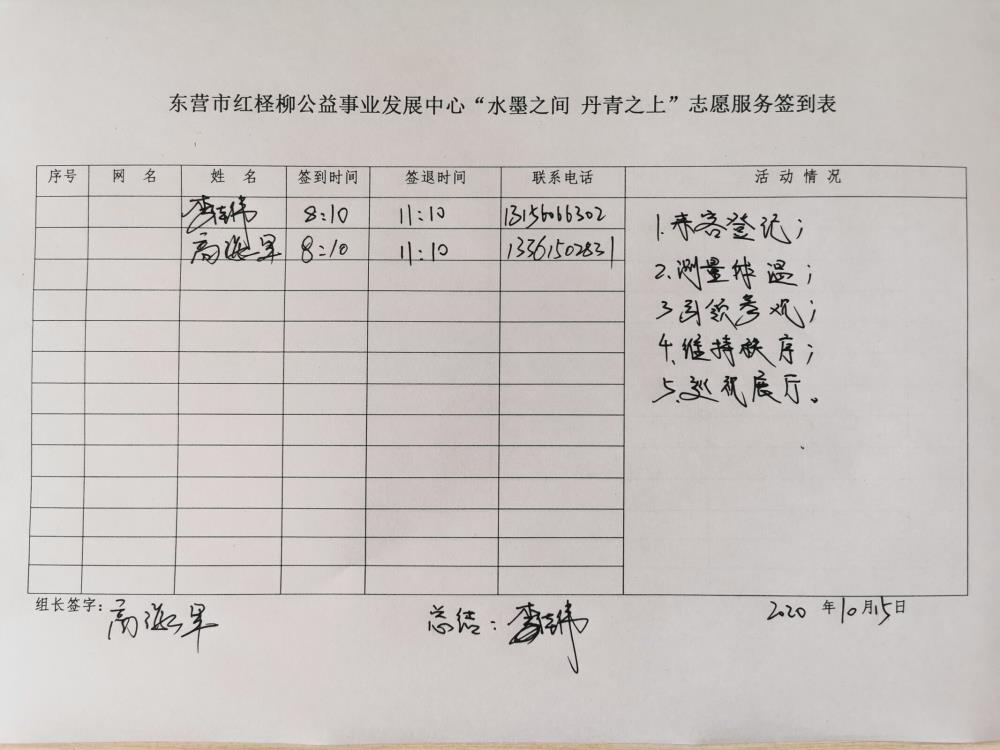 东营市红柽柳公益事业发展中心“水墨之间 丹青之上”志愿服务签到表
序号 网 名 姓 名 签到时间 签退时间 联系电话 活 动 情 况
李佳伟 8:10 11:10 13156066302
高海军 8:10 11:10 13361502831
1.来客登记；
2.测量体温；
3.引领参观；
4.维持秩序；
5.巡视展厅。
组长签字：高海军 总结：李佳伟 2020 年10月15日